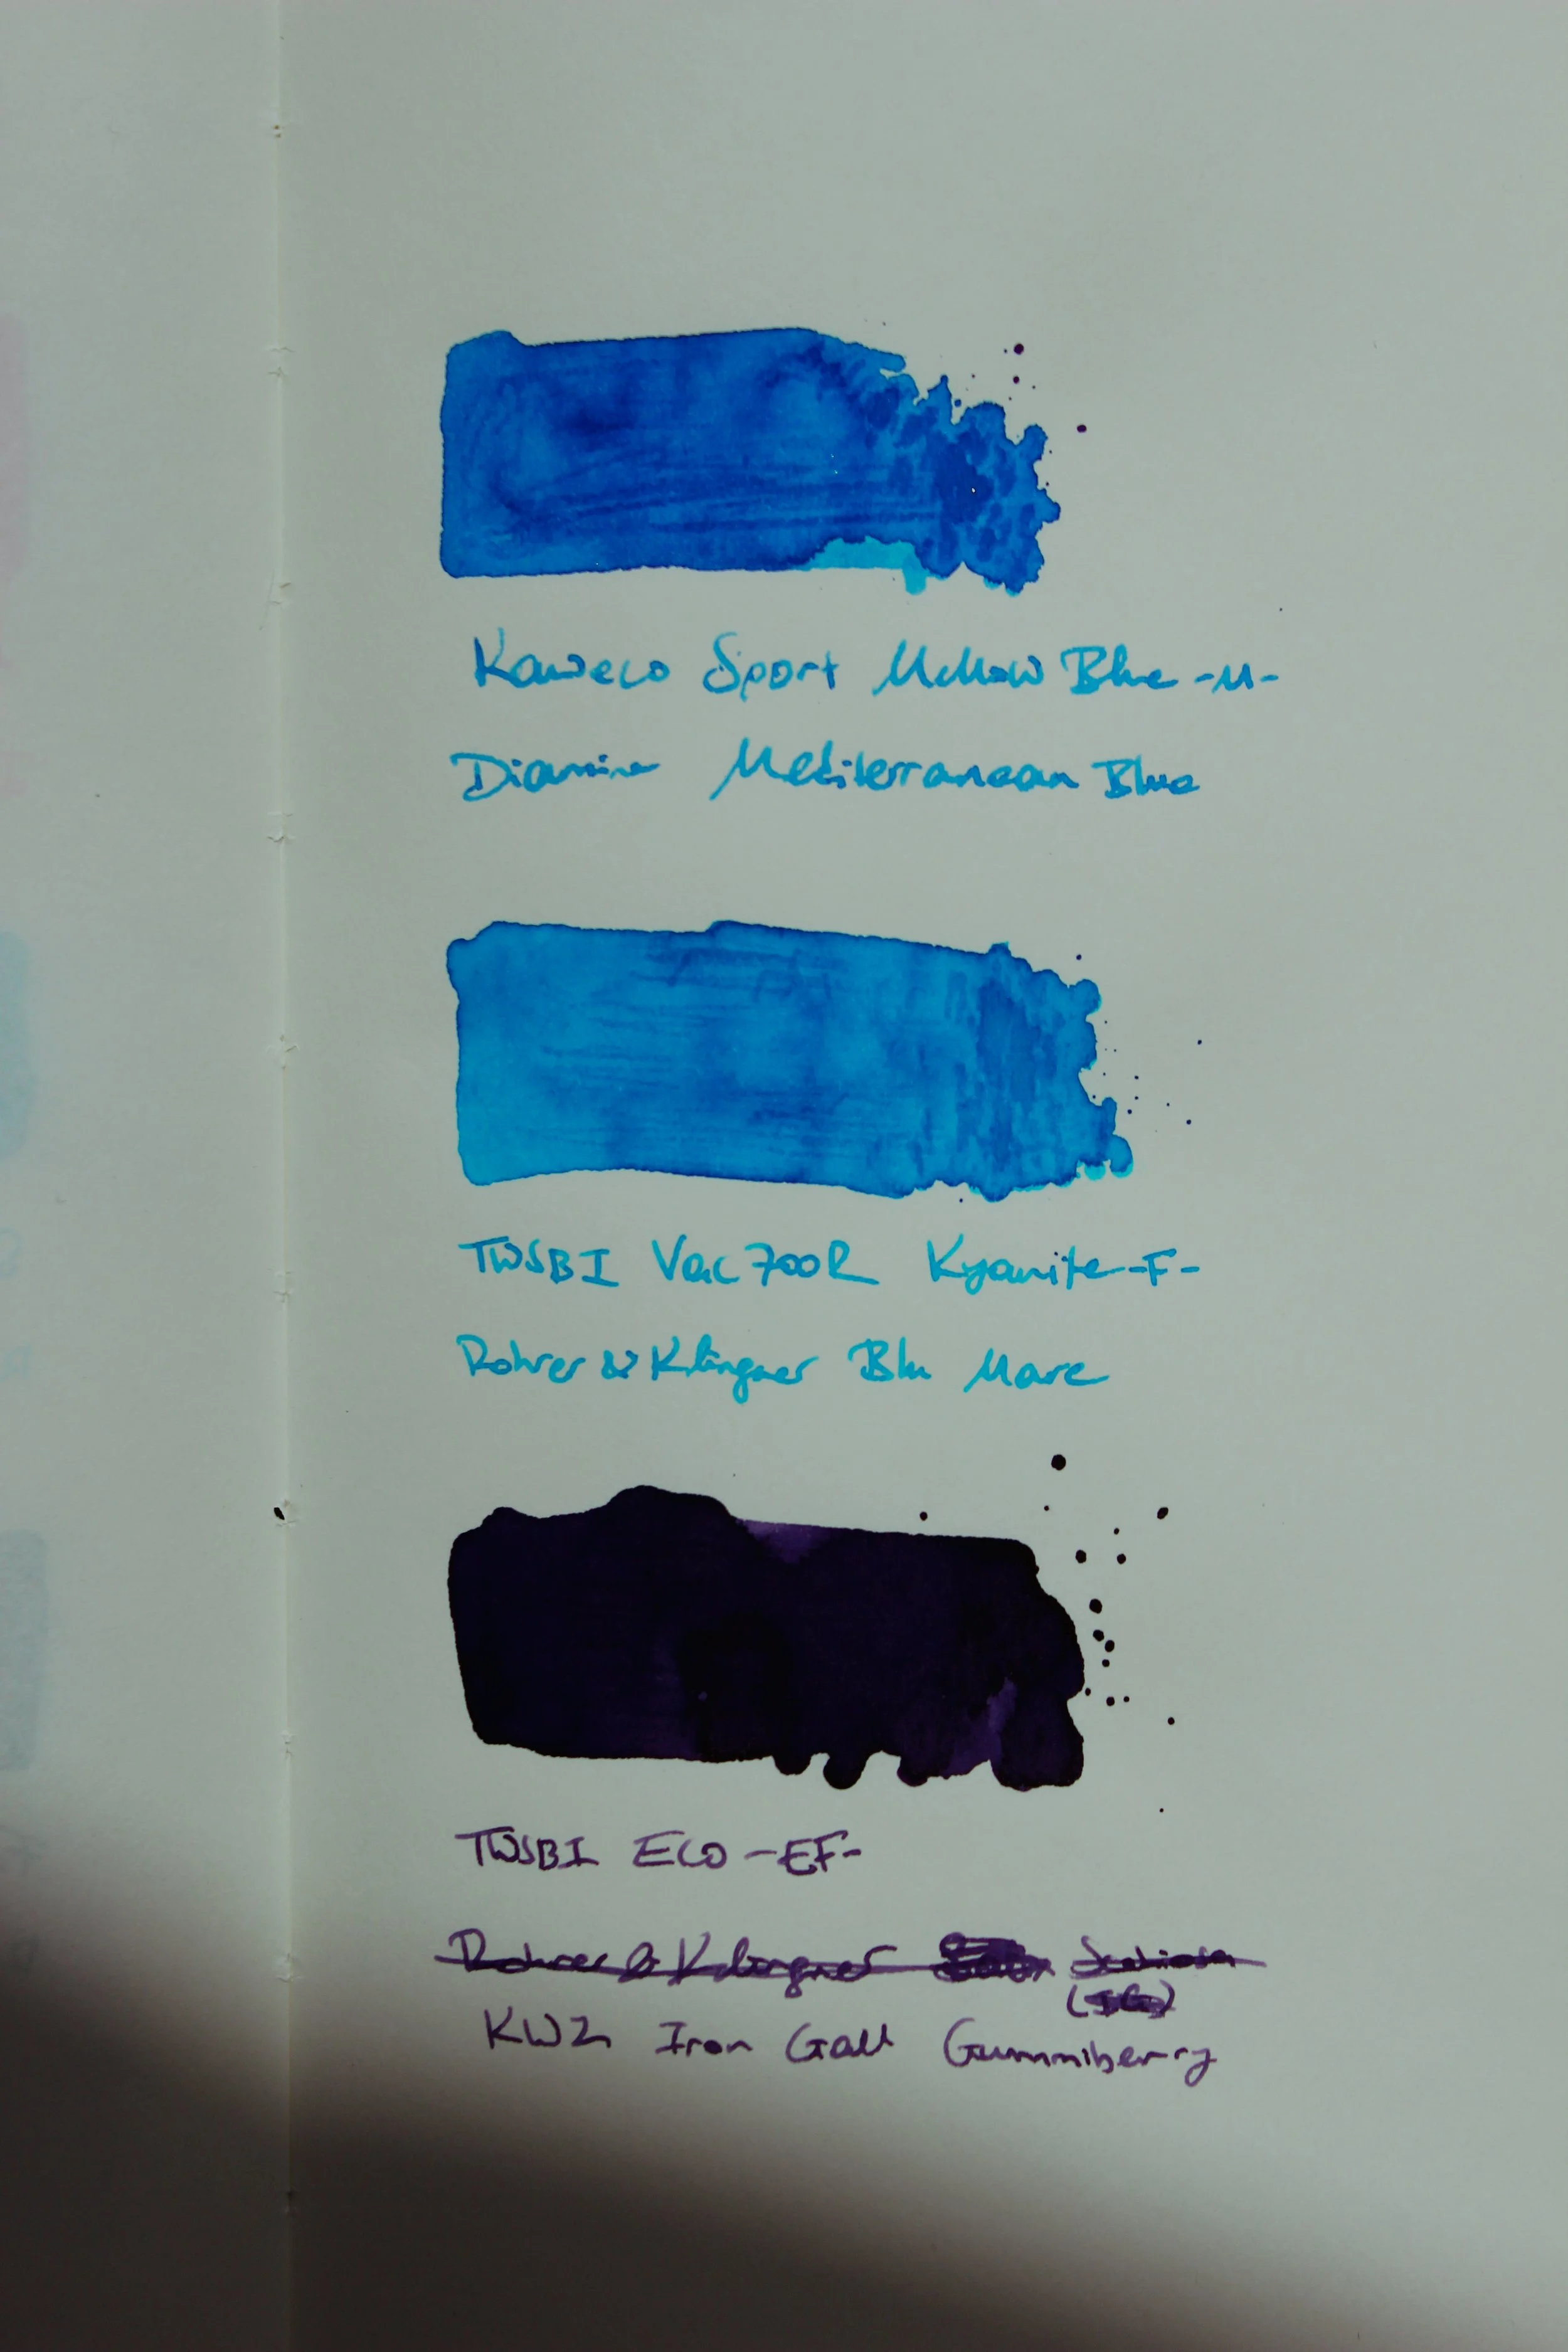 Kaweco Sport Mellow Blue -M-
Diamine Mediterranean Blue
TWSBI Vac700R Kyanite -F-
Rohrer & Klingner Blu Mare
TWSBI ECO -EF-
Rohrer & Klingner Scabiosa
(IG)
KWZ Iron Gall Gummiberry